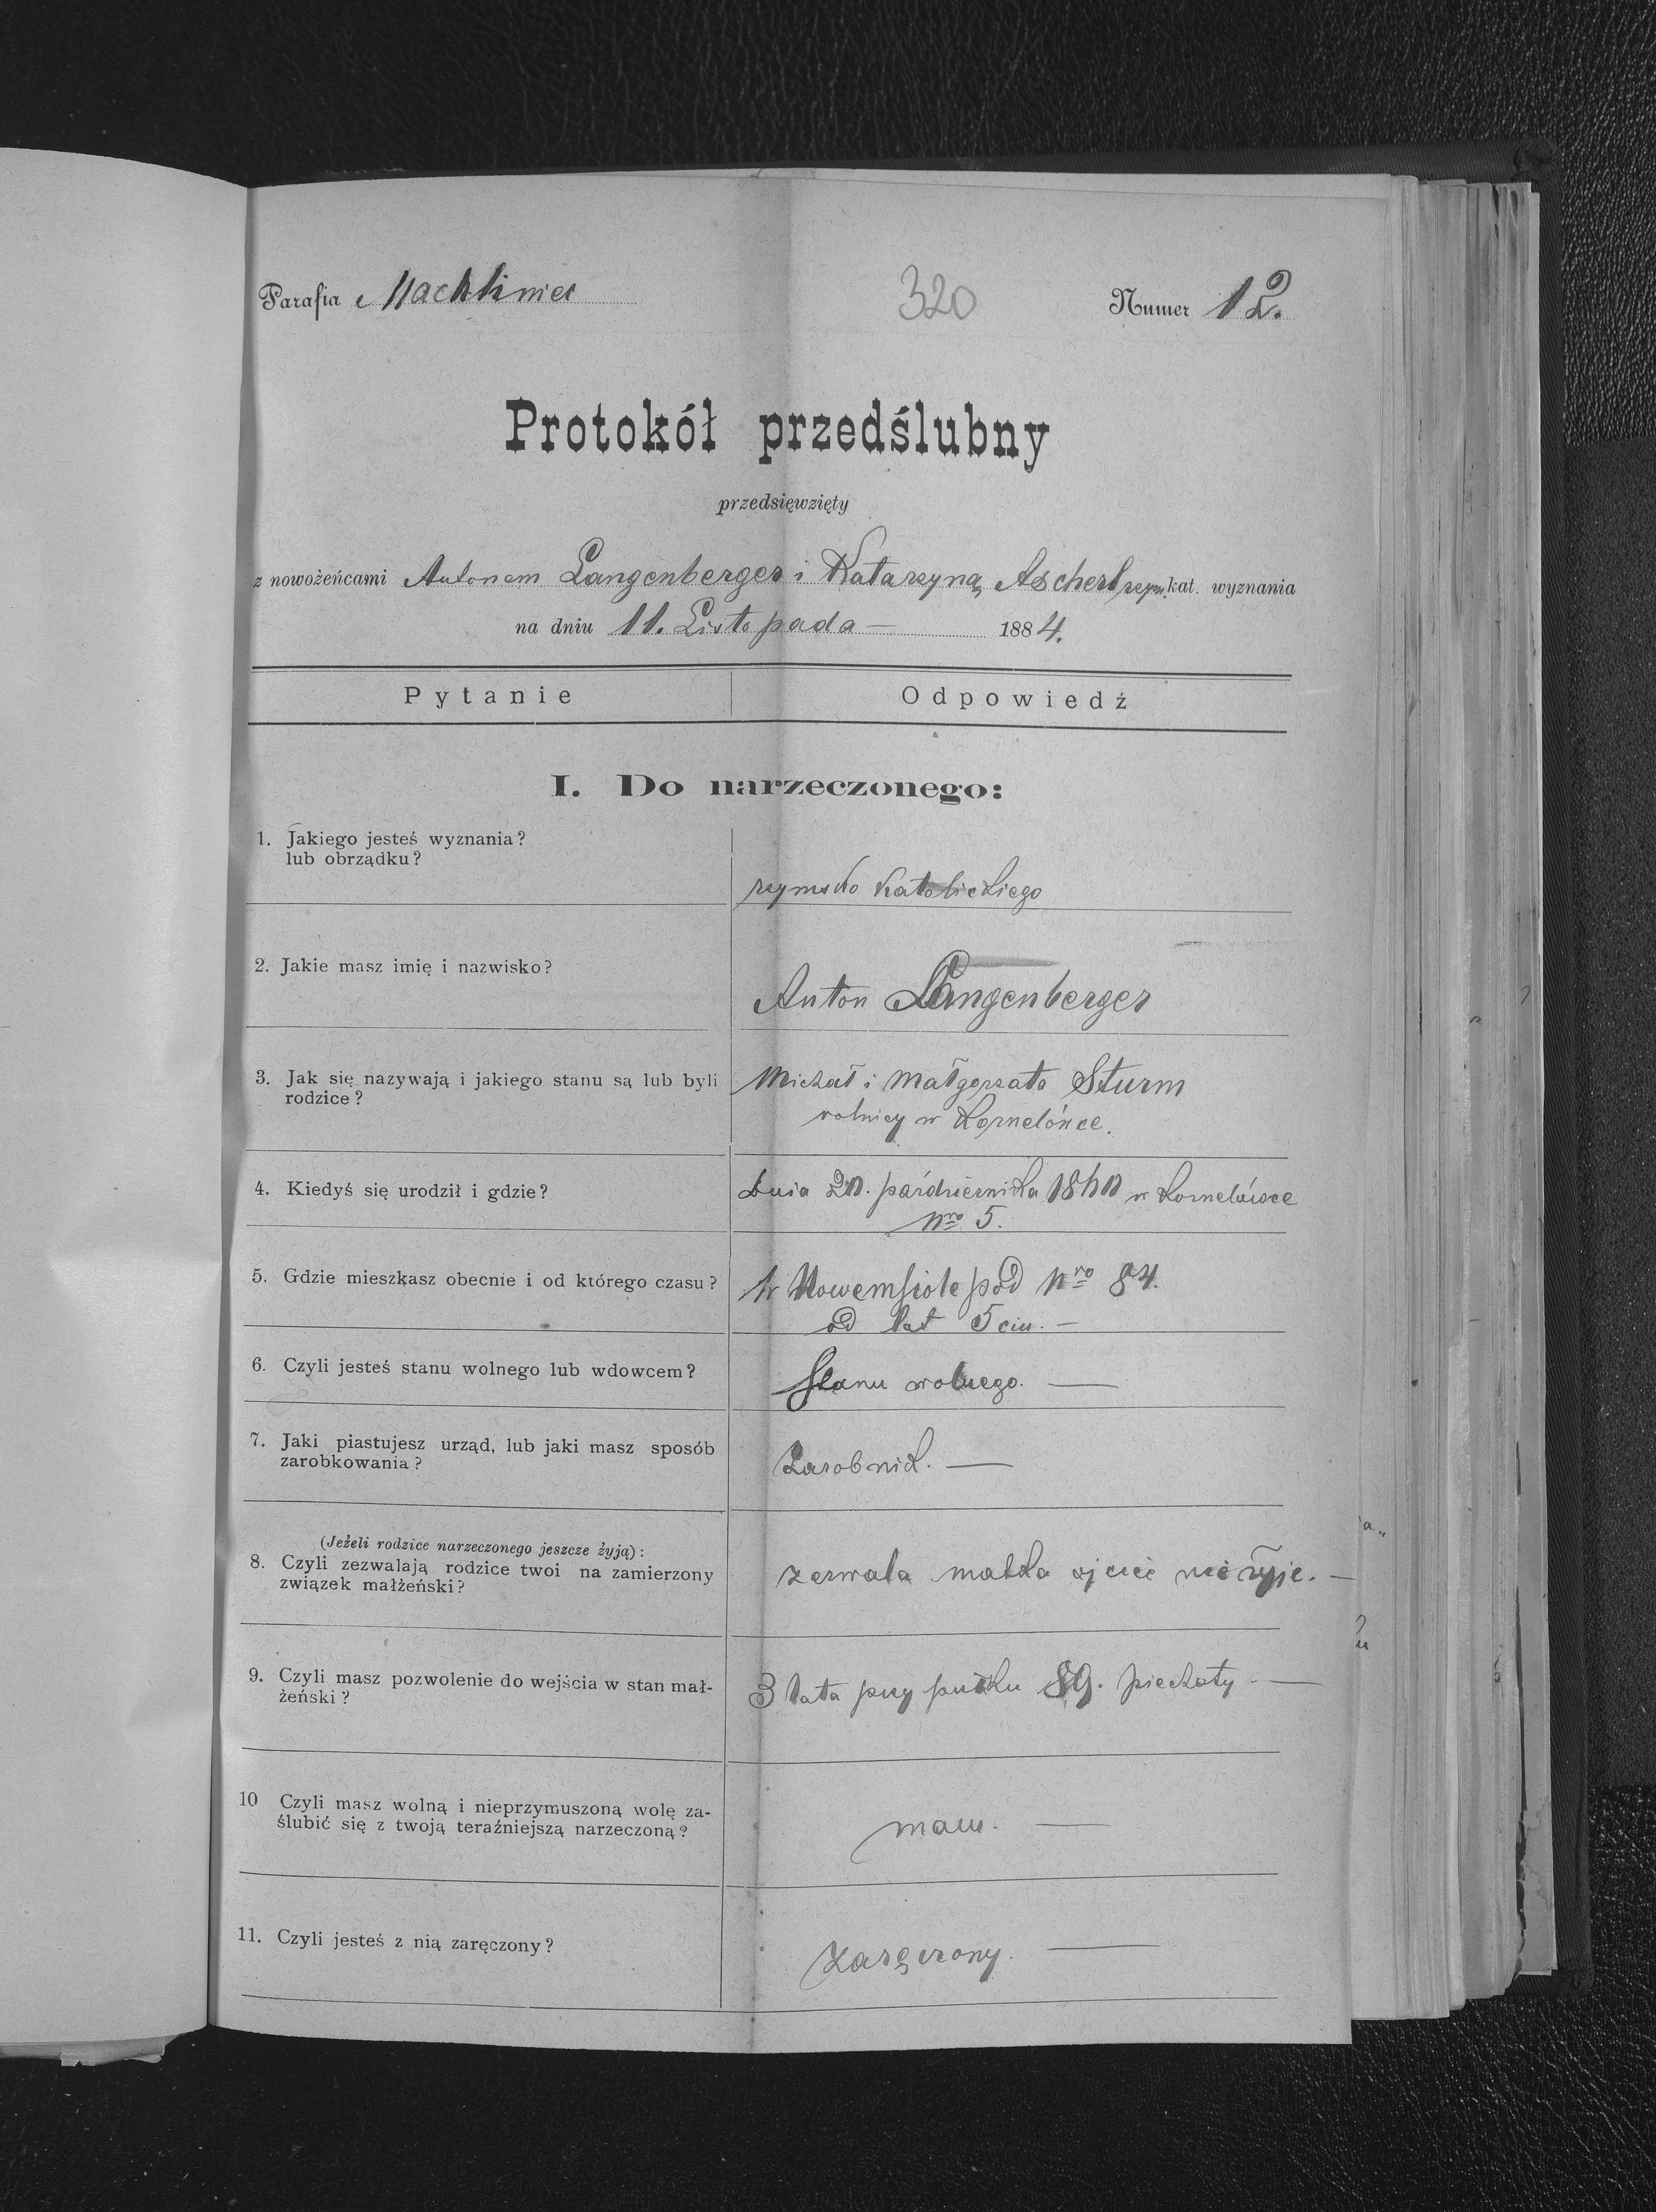 Parafia Machliniec 320 Numer 12.
Protokół przedślubny
przedsięwzięty
z nowożeńcami Antonem Langenberger i Katarzyną Ascherl rzym. kat. wyznania
na dniu 11. Listopada — 1884.
Pytanie Odpowiedź
I. Do narzeczonego:
1. Jakiego jesteś wyznania?
lub obrządku?
rzymsko katolickiego
2. Jakie masz imię i nazwisko?
Anton Langenberger
3. Jak się nazywają i jakiego stanu są lub byli
rodzice?
Michał i Małgorzata Sturm
rolnicy w Kornelówce.
4. Kiedyś się urodził i gdzie?
Dnia 20. października w Kornelówce
nro 5.
5. Gdzie mieszkasz obecnie i od którego czasu?
W Nowemsiole pod nro 84.
od lat 5ciu. —
6. Czyli jesteś stanu wolnego lub wdowcem?
Stanu wolnego. —
7. Jaki piastujesz urząd, lub jaki masz sposób
zarobkowania?
Zarobnik. —
(Jeżeli rodzice narzeczonego jeszcze żyją):
8. Czyli zezwalają rodzice twoi na zamierzony
związek małżeński?
zezwala matka ojciec nie żyje. —
9. Czyli masz pozwolenie do wejścia w stan mał-
żeński?
3 lata przy pułku 89. piechoty. —
10 Czyli masz wolną i nieprzymuszoną wolę za-
ślubić się z twoją teraźniejszą narzeczoną?
mam. —
11. Czyli jesteś z nią zaręczony?
zaręczony. —